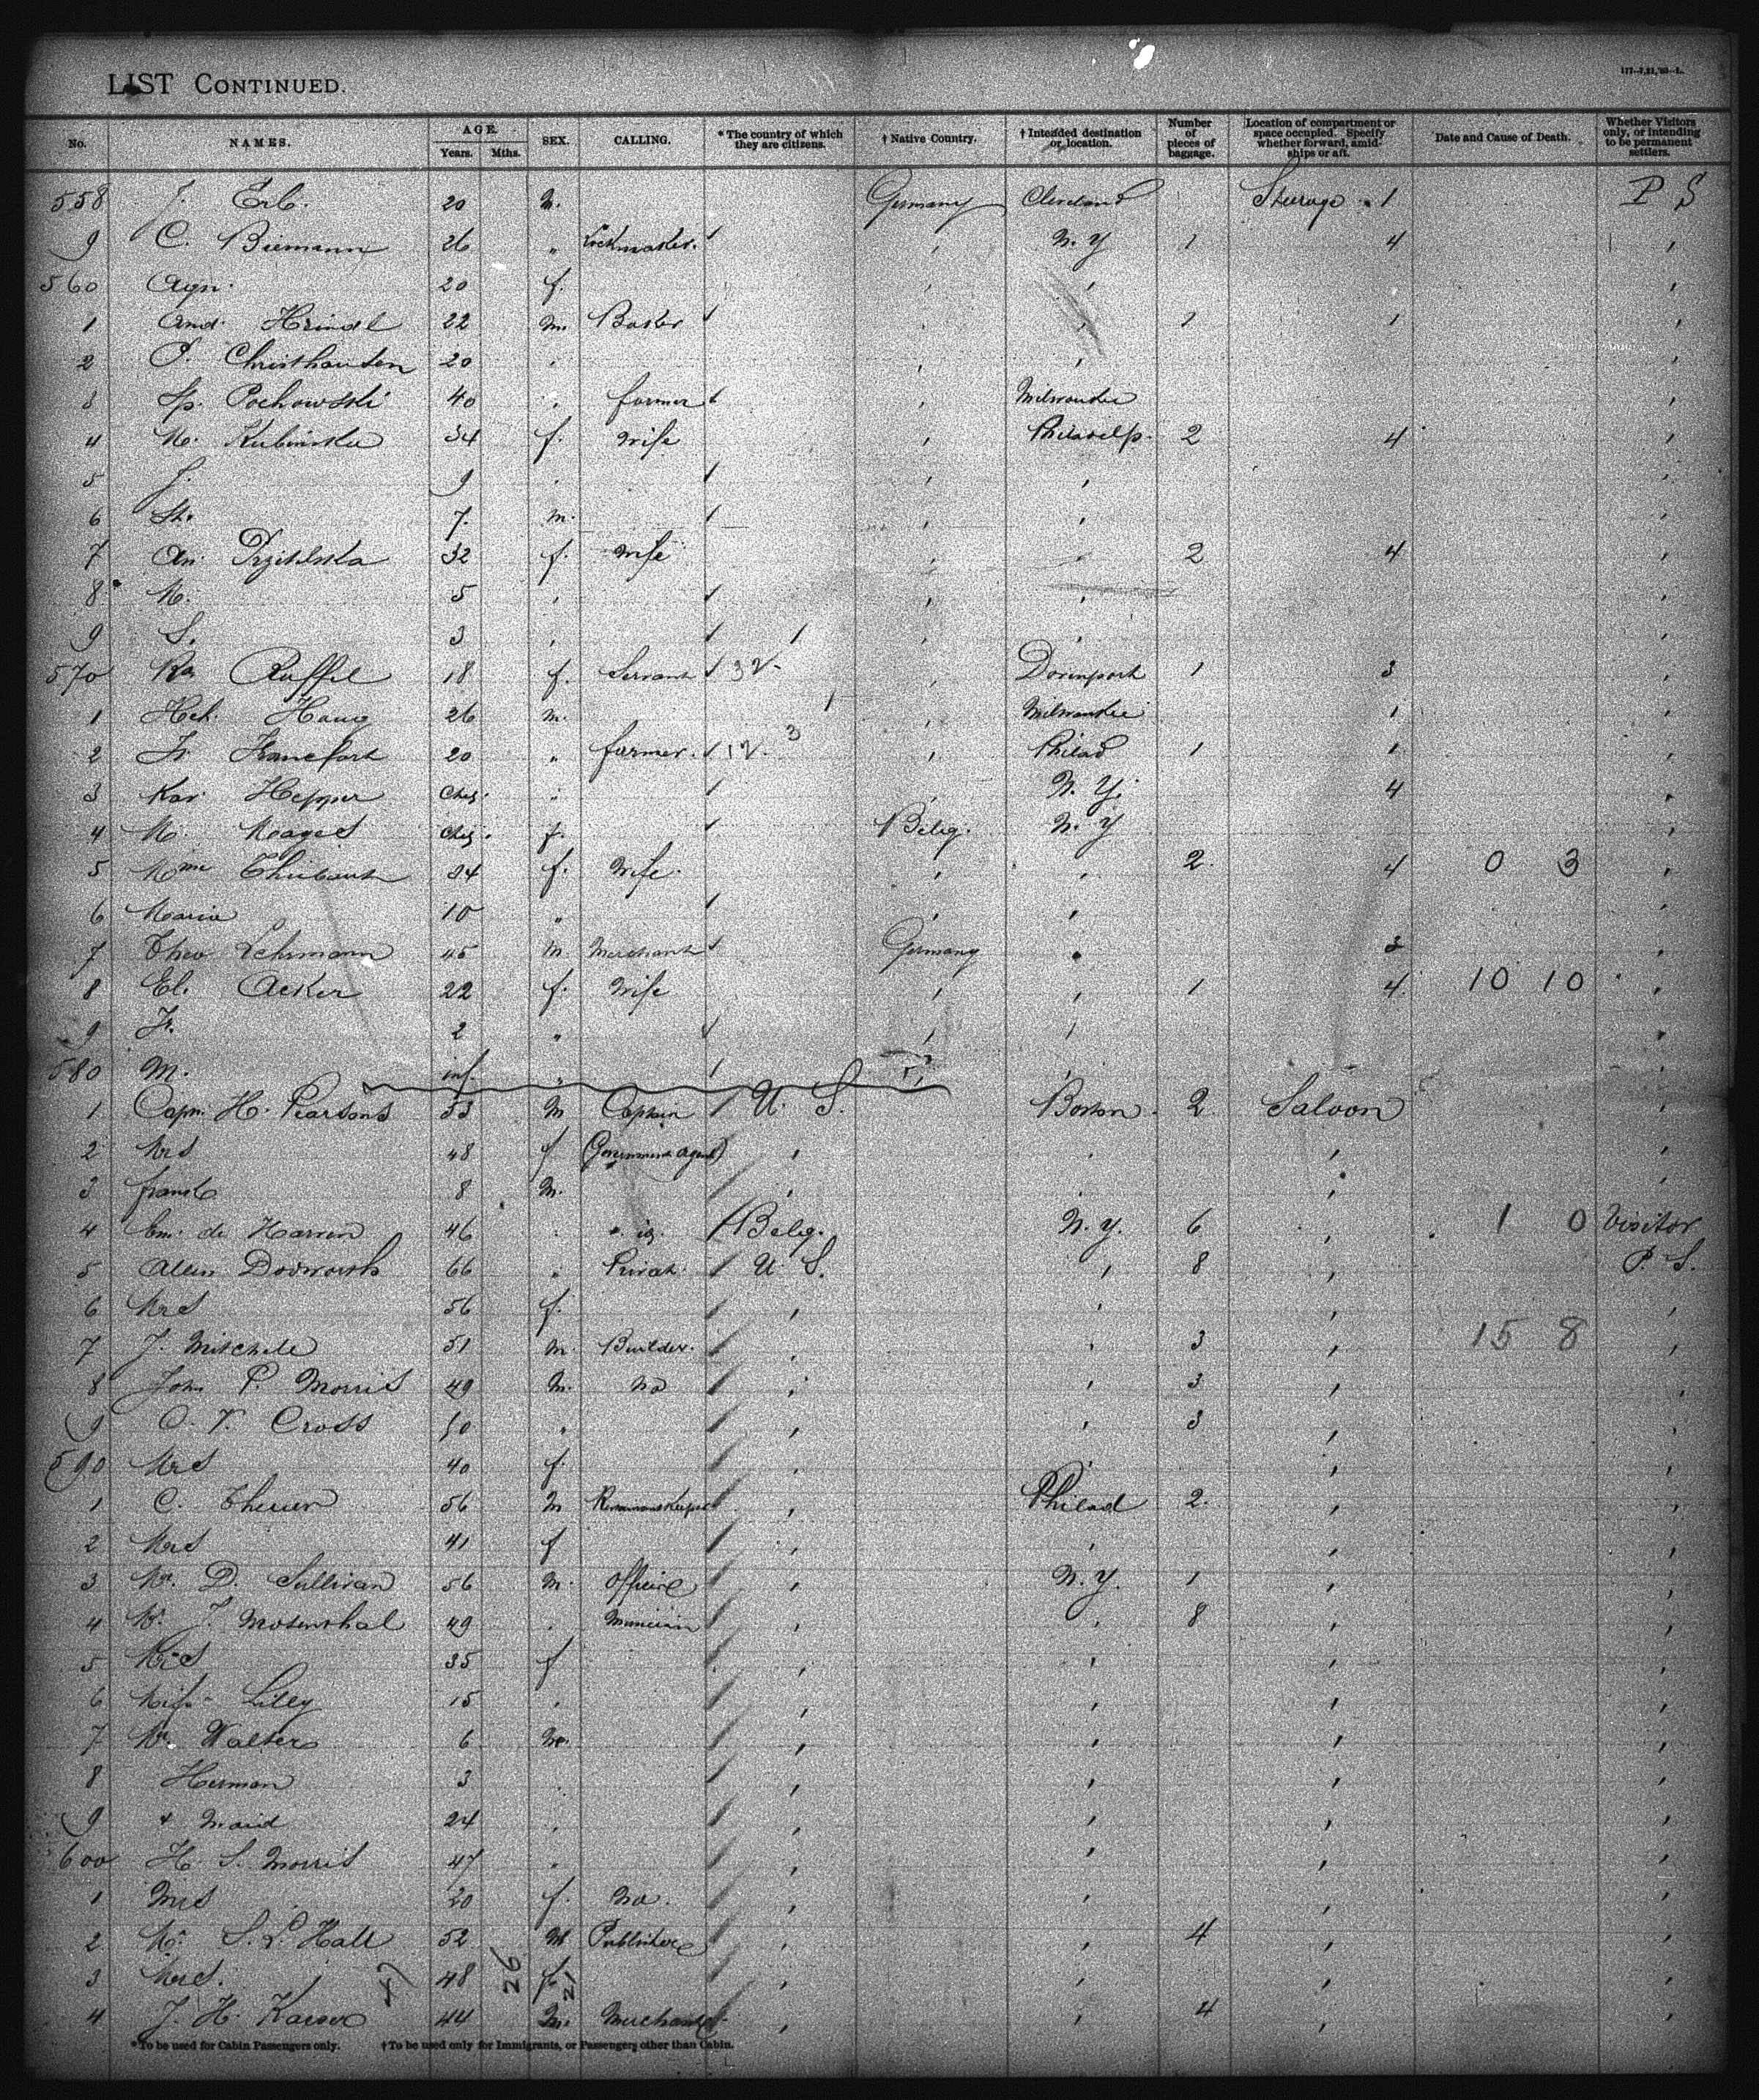 LIST CONTINUED.
117-7,21,'83-L.
No. NAMES. AGE. Years. Mths. SEX. CALLING. * The country of which they are citizens. † Native Country. † Intended destination or location. Number of pieces of baggage. Location of compartment or space occupied. Specify whether forward, amidships or aft. Date and Cause of Death. Whether Visitors only, or intending to be permanent settlers.
558 J. Erb. 20 M. Germany Cleveland Steerage 1 P S
9 C. Biemann 26 " N. Y 1 4
560 Agn. 20 f.
1 And. 22 m. Baker 1 1
2 P. Christhausen 20
3 Sp. Pochowski 40 farmer Milwaukee
4 M. Kubinska 34 f. wife Philadelp. 2 4
5 J. 9
6 St. 7. m.
7 An. 32 f. wife 2 4
8 M. 5
9 S. 3
570 Ka Ruffel 18 f. Servant 32 Davenport 1 3
1 Hch. Haug 26 m. Milwaukee 1
2 Fr Francfort 20 " farmer. 12. 3 Philad 1 1
3 Kar. Hepper N. Y. 4
4 M. f. Belg. N. Y
5 Mme 34 f. Wife 2. 4 0 3
6 Maria 10 "
7 Theo Lehmann 45 m. Merchant Germany 3
8 El. Acker 22 f. Wife 1 4. 10 10
9 Fr. 2 "
580 M. inf. "
1 Capn. H. Pearsons 53 M Captain U. S. Boston. 2 Saloon
2 Mrs 48 f (Government Agent)
3 Frank 8 M.
4 Em. de Harven 46 Belg. N. Y. 6 1 0 Visitor
5 Allen Dodworth 66 " Privat U S. 8 P. S.
6 Mrs 56 f.
7 J. Mitchele 51 m. Builder. 3 15 8
8 John P. Morris 49 M. no 3
9 O. T. Cross 50 " 3
590 Mrs 40 f.
1 C. 56 M Philad 2.
2 Mrs 41 f
3 Mr. D. Sullivan 56 M. N. Y. 1
4 Mr. J. Mosenthal 49 Musician 8
5 Mrs 35 f
6 Miss Lilly 15
7 Mr. Walter 6 m.
8 Herman 3
9 + Maid 24
600 H. S. Morris 47 "
1 Mrs 20 f. no.
2 Mr. S. L. Hall 52 M Publisher 4
3 Mrs. 48 f.
47 26 21
4 J. H. 44 M. Merchant 4
* To be used for Cabin Passengers only. † To be used only for Immigrants, or Passengers other than Cabin.